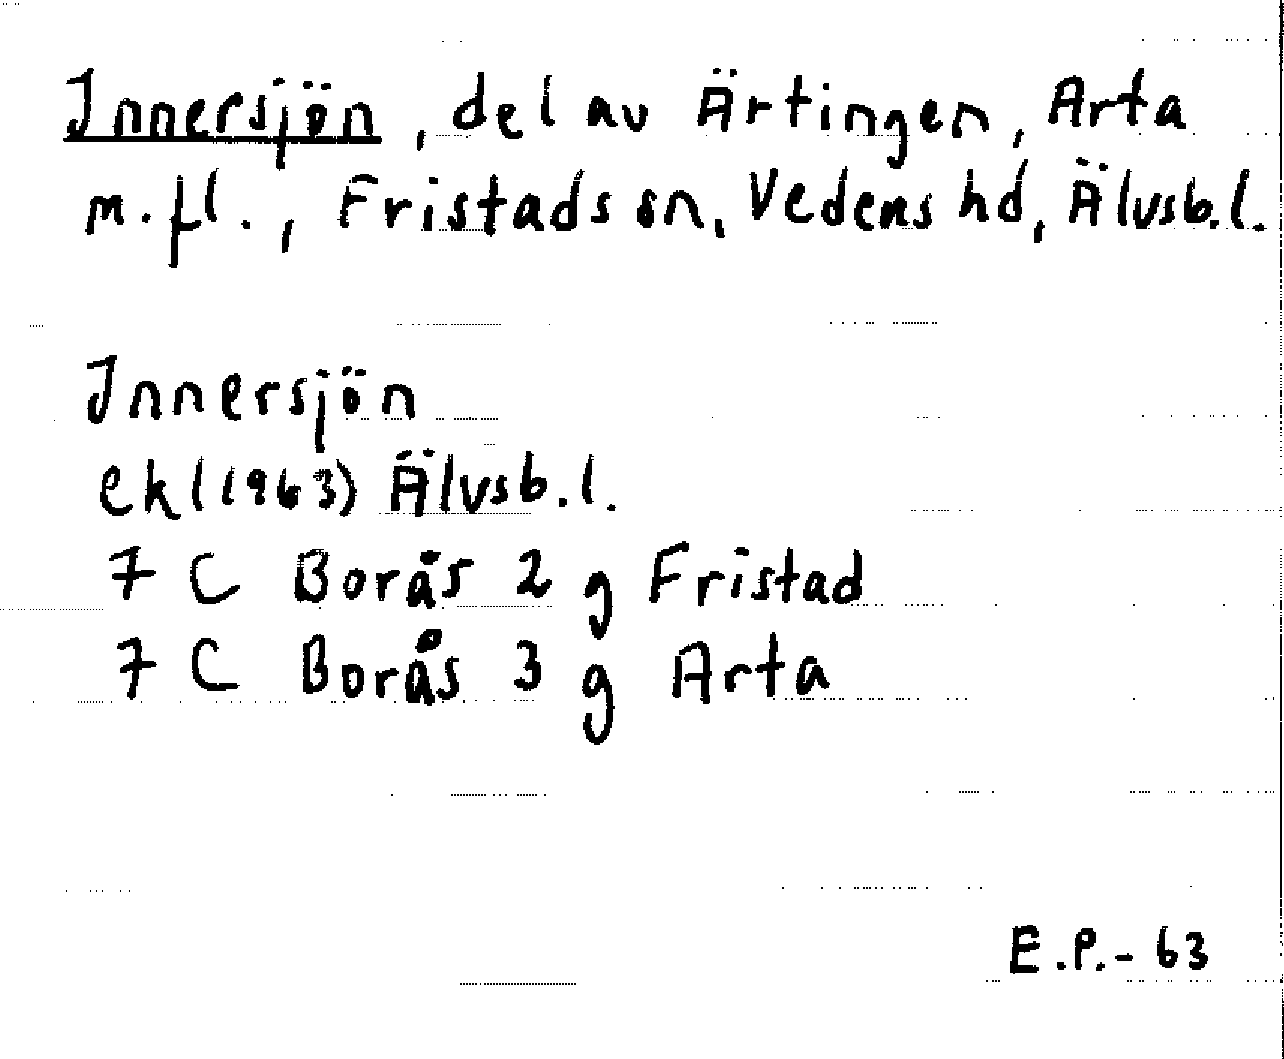 Innersjön, del av Ärtingen, Arta
m.fl., Fristads sn, Vedens hd, Älvsb.l.
Innersjön
ek(1963) Älvsb.l.
7 C Borås 2 g Fristad
7 C Borås 3 g Arta
E.P.-63